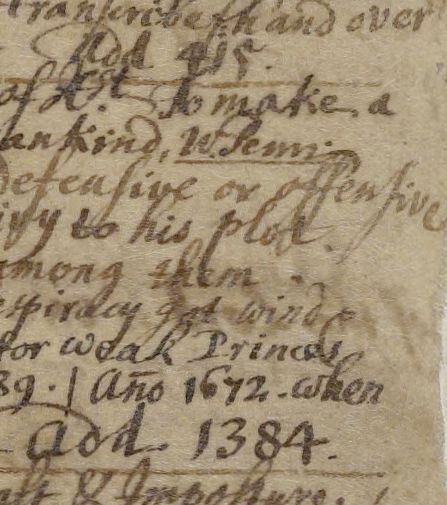 transcribeth and over
Add 415.
to make a
ankind, W. Penn:
defensive or offensive
ivy to his plot
among them
nspiracy got wind
for weak Princes
89. | Año 1672. when
add. 1384.
& Imposture.